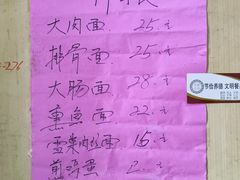 大肉面 25.元
排骨面 25.元
大肠面 28.元
熏鱼面 22.元
雪菜肉丝面 15.元
煎鸡蛋 2.元
节俭养德 文明餐